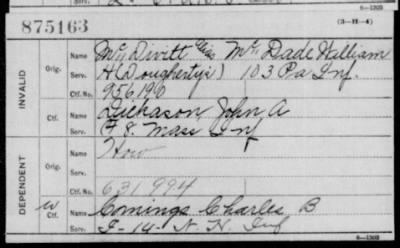 6-1303
875163
(3-11-4)
INVALID
Orig.
Name McDevitt alias McDade William
Serv. H (Dougherty's) 103 Pa Inf.
Ctf. No. 956190
Ctf.
Name Dickason John A
Serv. F 8. Mass Inf
DEPENDENT
Orig.
Name How
Serv.
Ctf. No. 631994
W
Ctf.
Name Comings Charles B
Serv. I-14-N. H. Inf
6-1303